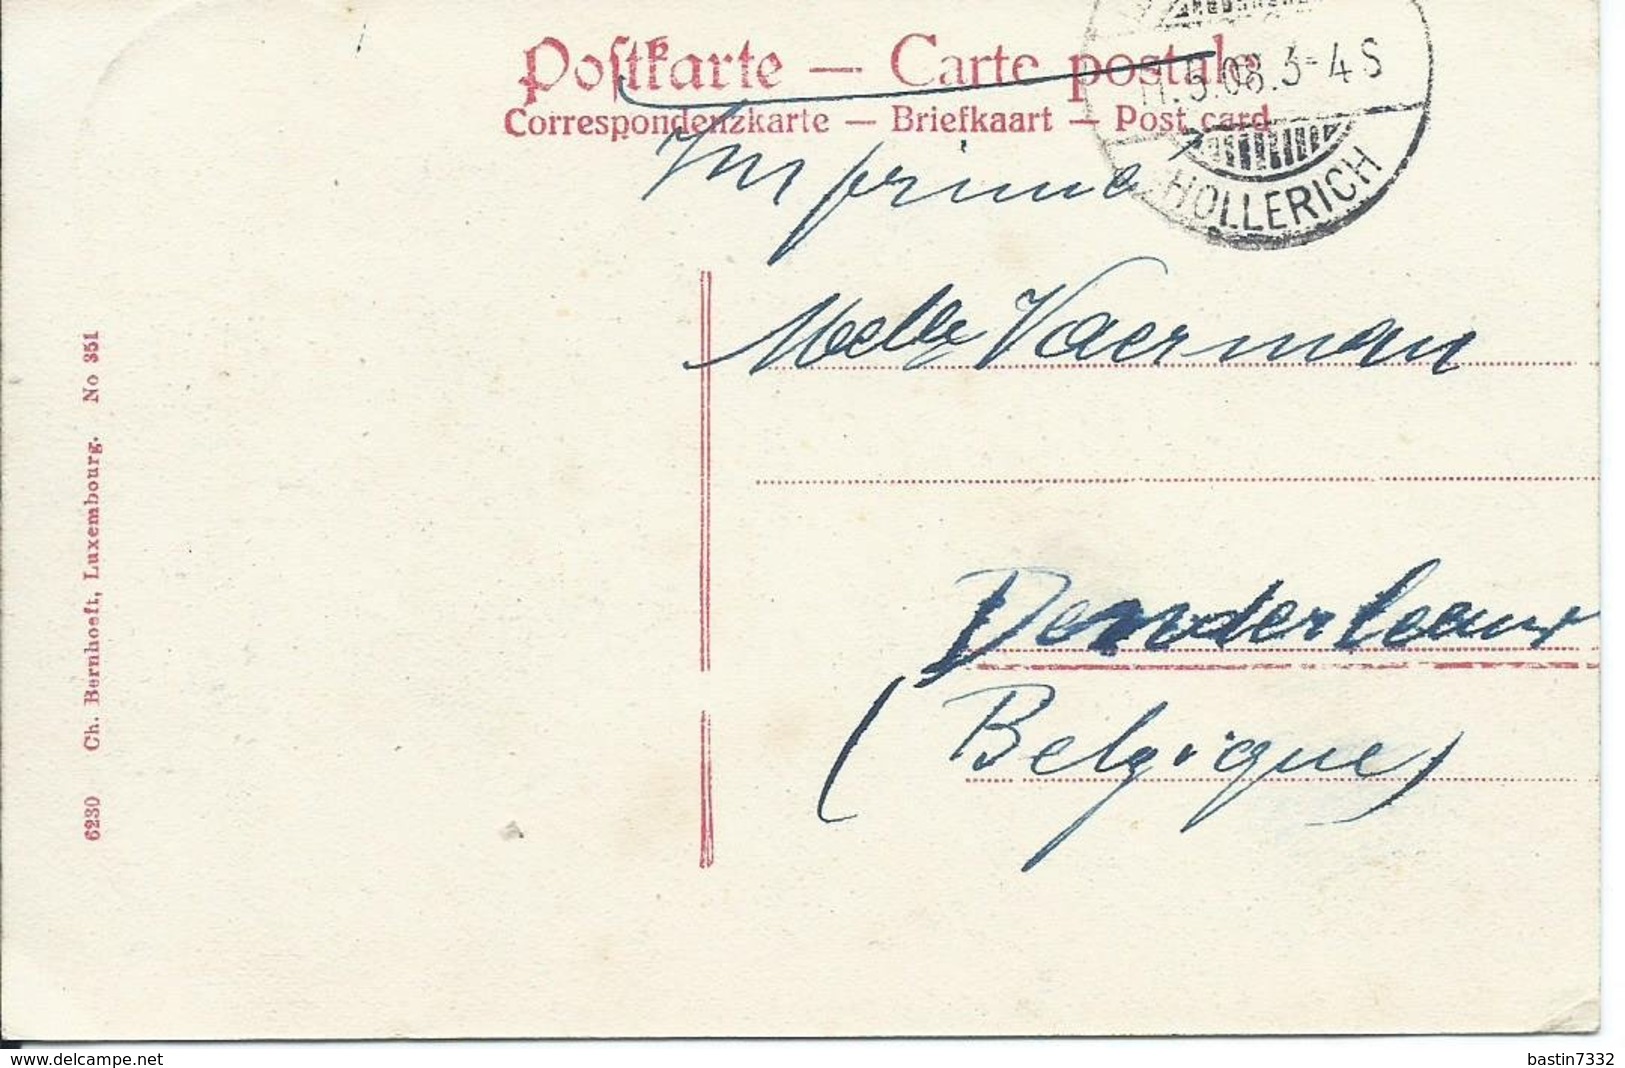 Postkarte — Carte postale
Correspondenzkarte — Briefkaart — Post card
11.5.08.3-4S
HOLLERICH
Imprimé
Melle Vaerman
Denderleeuw
(Belgique)
6230 Ch. Bernhoeft, Luxembourg. No 351
www.delcampe.net
bastin7332